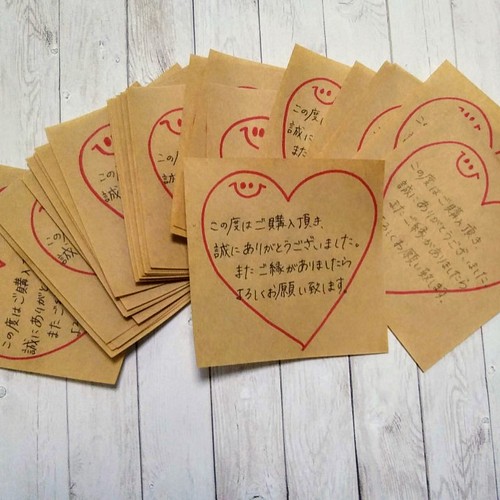 この度はご購入頂き、
誠にありがとうございました。
またご縁がありましたら
よろしくお願い致します。
この度はご購入
誠にありがとう
またご
よ
この度
誠に
また
この度はご購入頂き
誠にありがとうございま
またご縁がありましたら
ろしくお願い致します。